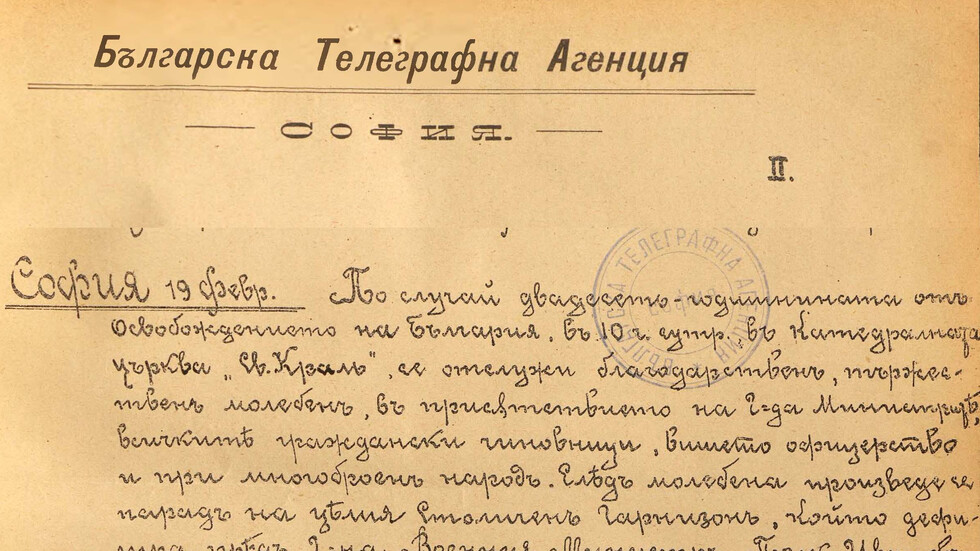 Българска Телеграфна Агенция
София.
II.
София 19 февр. По случай двадесетъ-годишнината отъ
Освобождението на България, въ 10 ч. сутр., въ Катедралната
църква „Св. Краль", се отслужи благодарственъ, тържес-
твенъ молебенъ, въ присѫтствието на Г-да Министритѣ,
всичкитѣ граждански чиновници, висшето офицерство
и при многоброенъ народъ. Слѣдъ молебена произведе се
парадъ на цѣлия Столиченъ Гарнизонъ, който дефи-
ТЕЛЕГРАФНА АГЕНЦИЯ